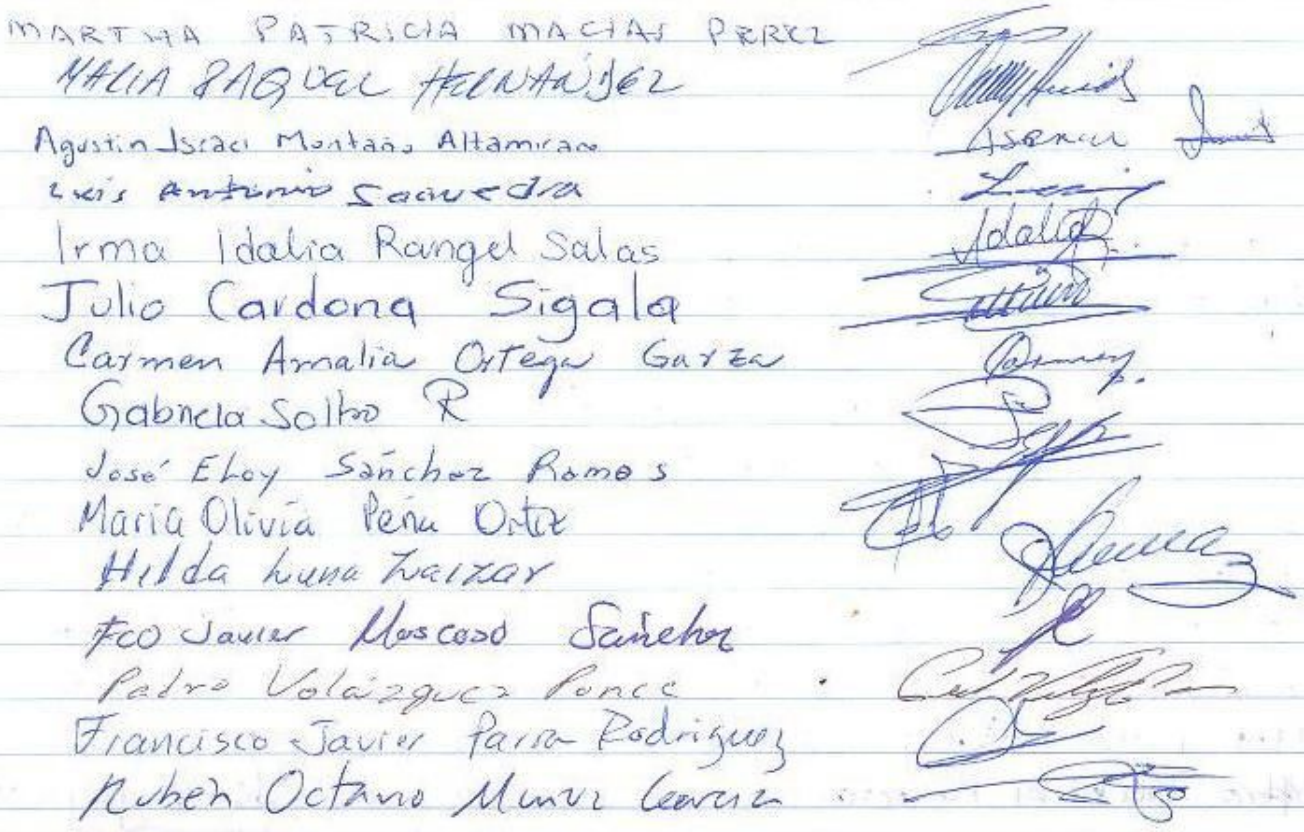 MARTHA PATRICIA MACIAS PEREZ
MARIA RAQUEL HERNANDEZ
Agustin Israel Montaño Altamirano Israel
Luis Antonio Saavedra
Irma Idalia Rangel Salas Idalia
Julio Cardona Sigala
Carmen Amalia Ortega Garza
Gabriela Solho R
José Eloy Sánchez Ramos
María Olivia Peña Ortiz
Hilda Luna Laizar
Fco Javier Moscoso Sánchez
Pedro Velázquez Ponce
Francisco Javier Parra Rodriguez
Ruben Octavio Munoz Garcia